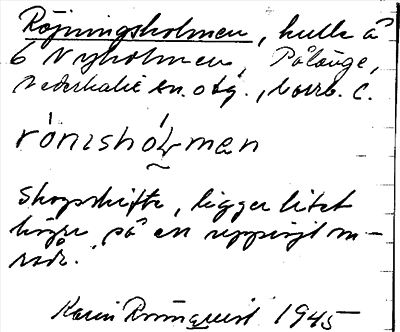 Röjningsholmen, kulle å
6 Nyholmen, Pålänge,
Nederkalix sn. o tg., Norrb. C.
rö̀nıshólmen
Skogsskifte, ligger litet
högre på en uppröjt m-
råde.
Karin Rönnqvist 1945